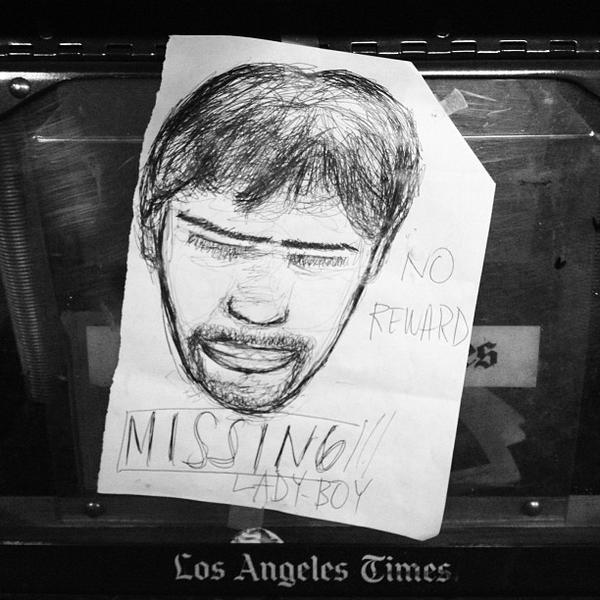 NO
REWARD
es
MISSING!!!
LADY-BOY
Los Angeles Times